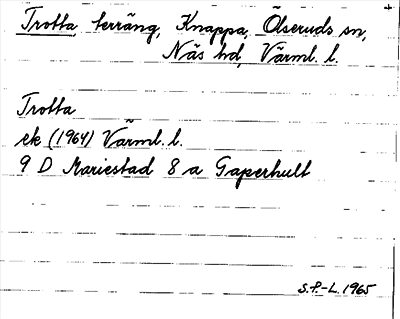 Trotta, terräng, Knappa, Ölseruds sn,
Näs hd, Värml. l.
Trotta
ek (1964) Värml. l.
9 D Mariestad 8 a Gaperhult
S.P.-L. 1965